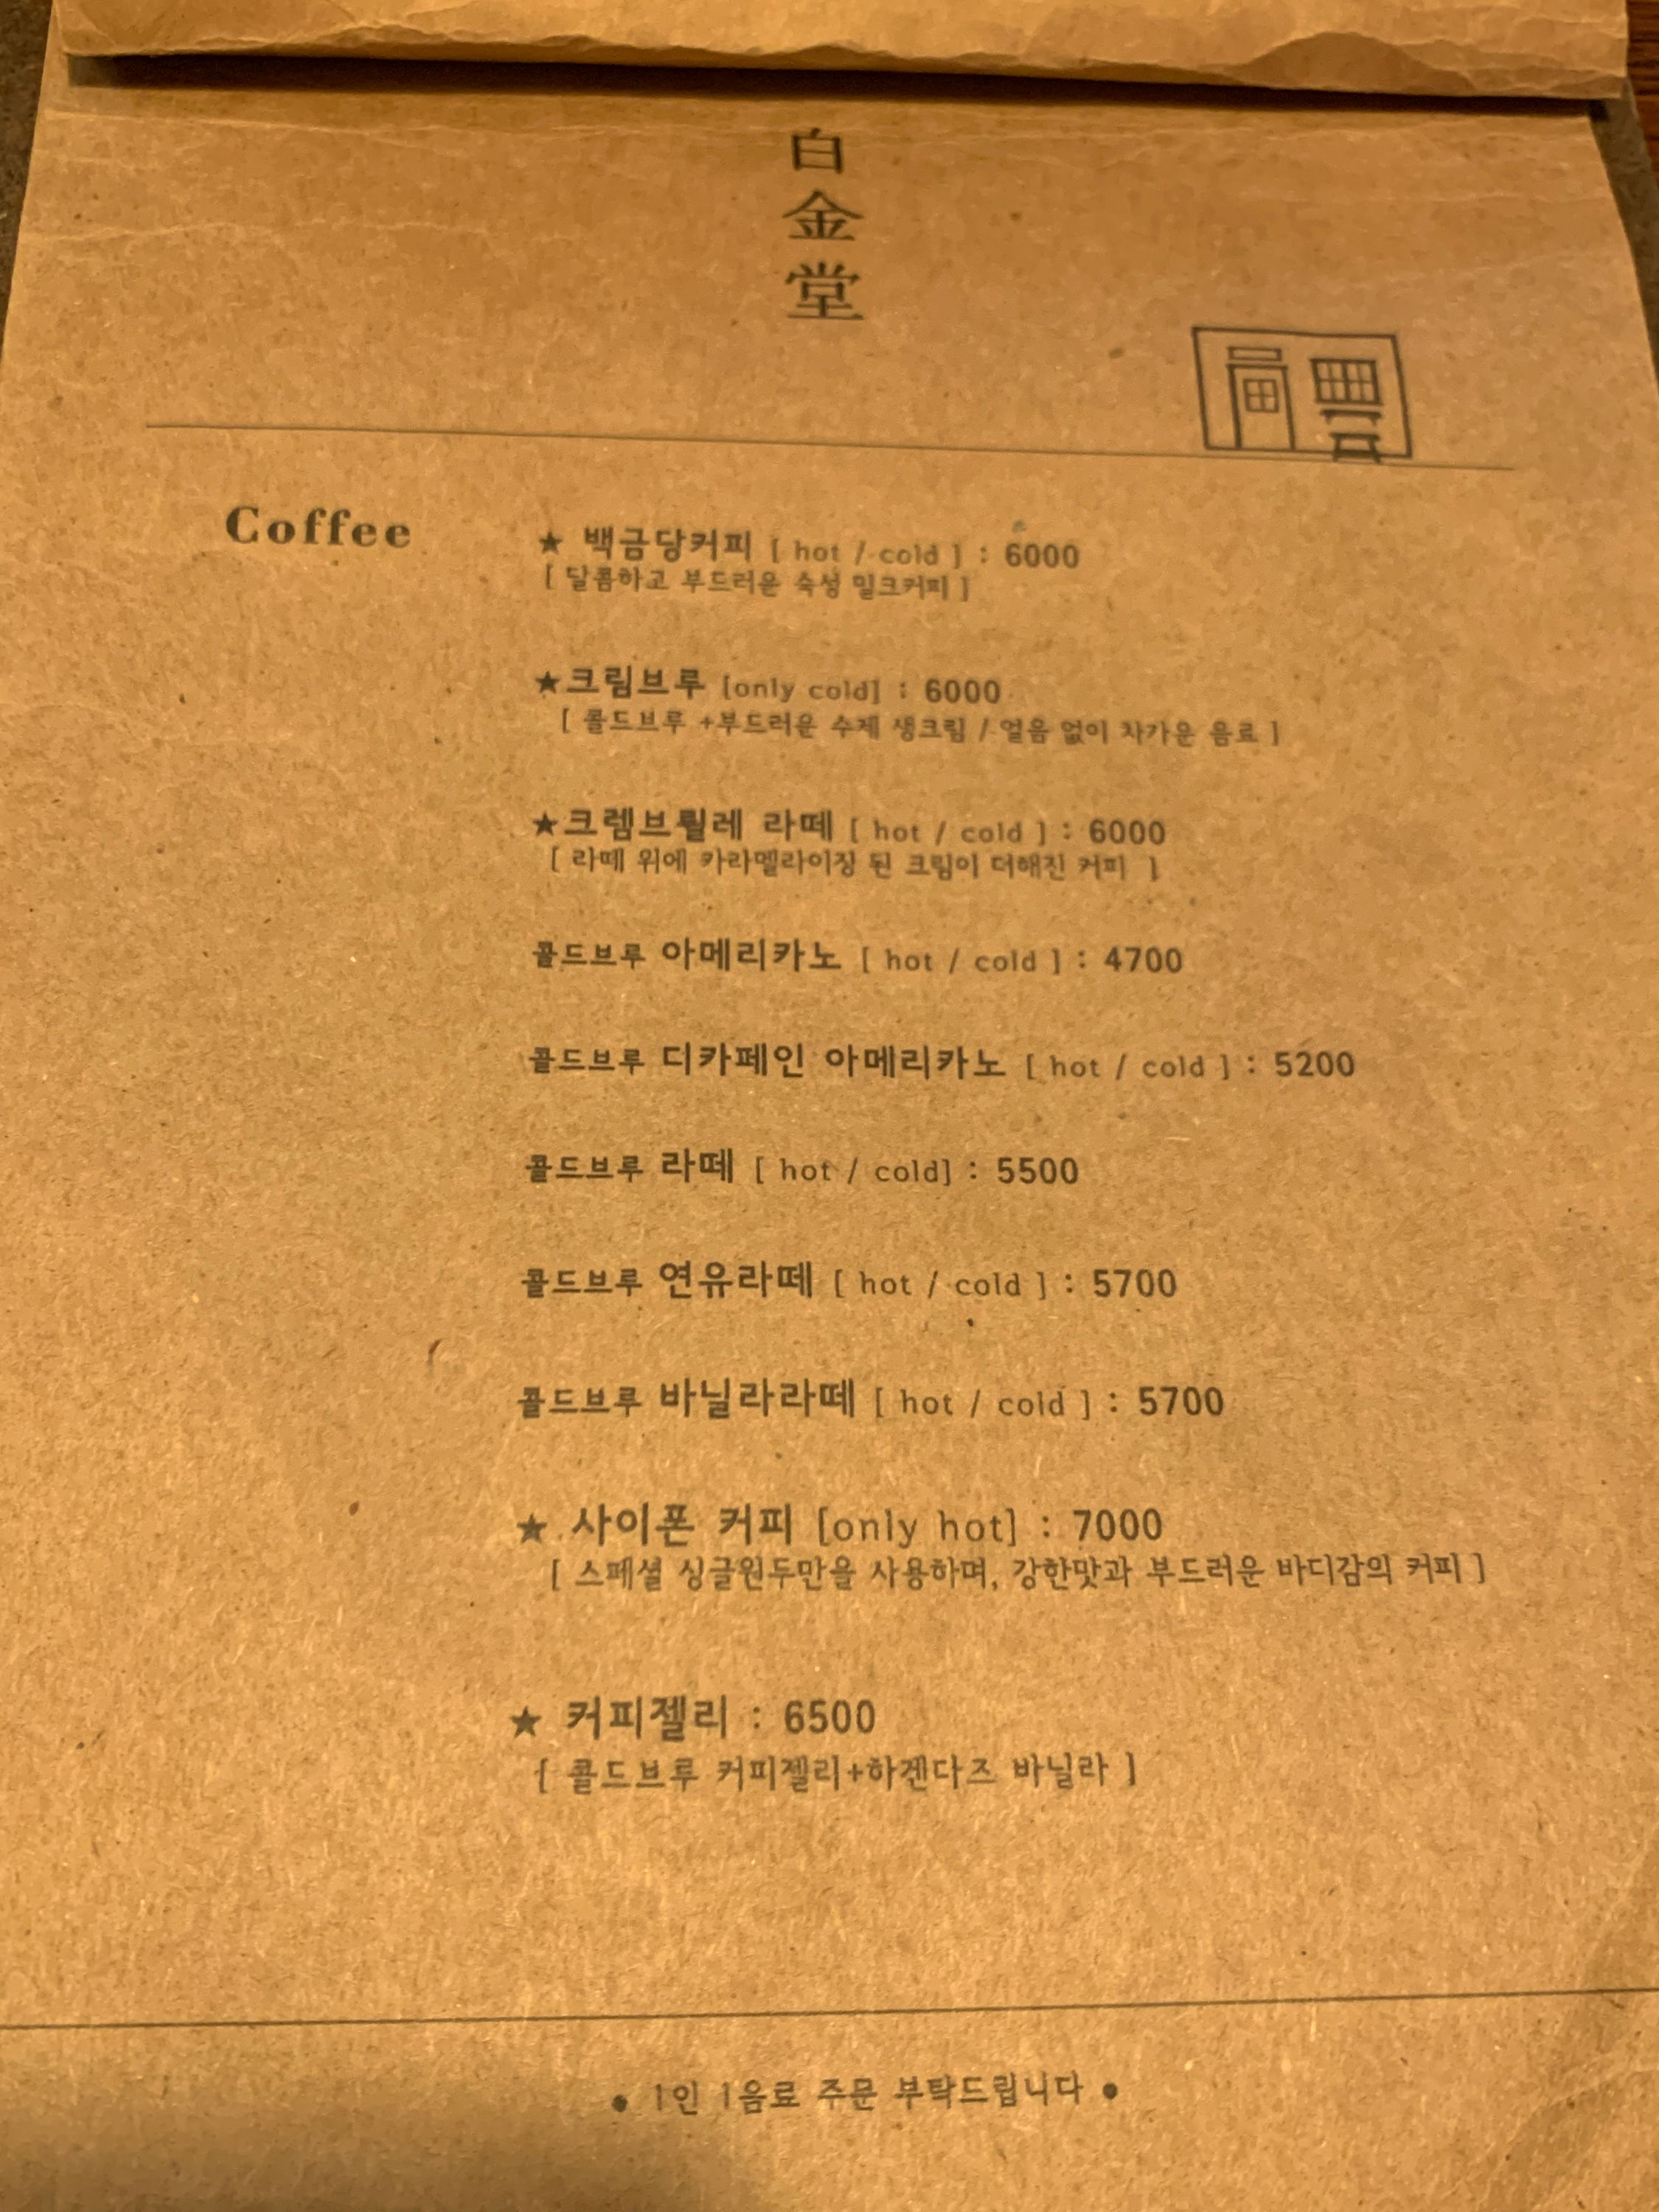 白
金
堂
Coffee
★ 백금당커피 [ hot / cold ] : 6000
[ 달콤하고 부드러운 숙성 밀크커피 ]
★크림브루 [only cold] : 6000
[ 콜드브루 +부드러운 수제 생크림 / 얼음 없이 차가운 음료 ]
★크렘브륄레 라떼 [ hot / cold ] : 6000
[ 라떼 위에 카라멜라이징 된 크림이 더해진 커피 ]
콜드브루 아메리카노 [ hot / cold ] : 4700
콜드브루 디카페인 아메리카노 [ hot / cold ] : 5200
콜드브루 라떼 [ hot / cold] : 5500
콜드브루 연유라떼 [ hot / cold ] : 5700
콜드브루 바닐라라떼 [ hot / cold ] : 5700
★ 사이폰 커피 [only hot] : 7000
[ 스페셜 싱글원두만을 사용하며, 강한맛과 부드러운 바디감의 커피 ]
★ 커피젤리 : 6500
[ 콜드브루 커피젤리+하겐다즈 바닐라 ]
● 1인 1음료 주문 부탁드립니다 ●